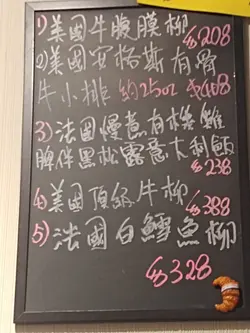 1) 美國牛腹膜柳 $208
2) 美國安格斯有骨
牛小排 約25oz $408
3) 法國慢煮有機雞
脾伴黑松露意大利飯
$238
4) 美國頂級牛柳 $388
5) 法國白鱈魚柳
$328